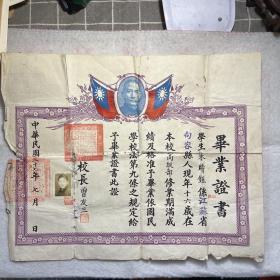 畢業證書
學生朱 係江蘇省
句容縣人現年十六歲在
本校高級部修業期滿成
績及格准予畢業依國民
學校法第九條之規定給
予畢業證書此證
校長曹友
中華民國 年七月 日